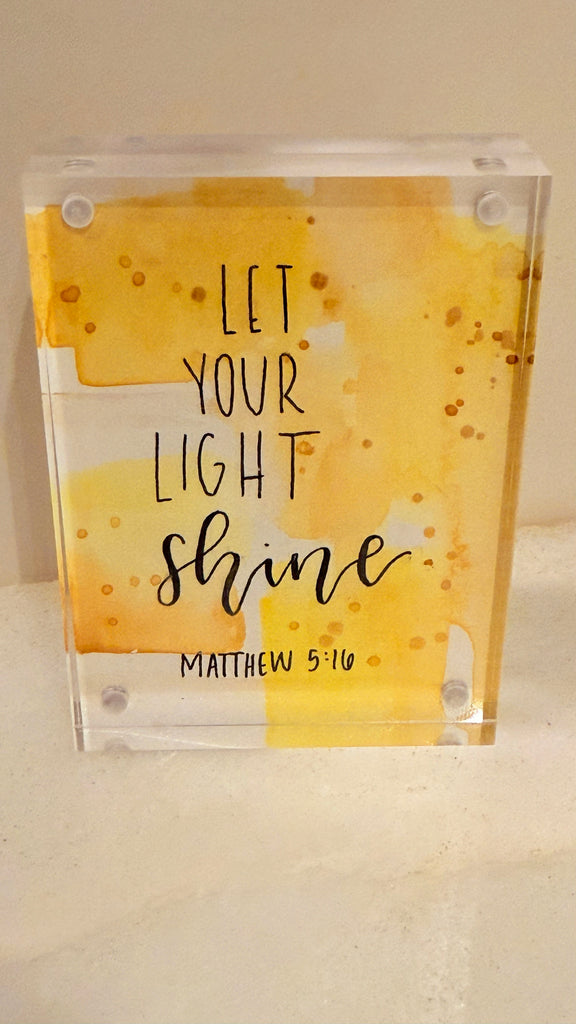 LET
YOUR
LIGHT
shine
MATTHEW 5:16